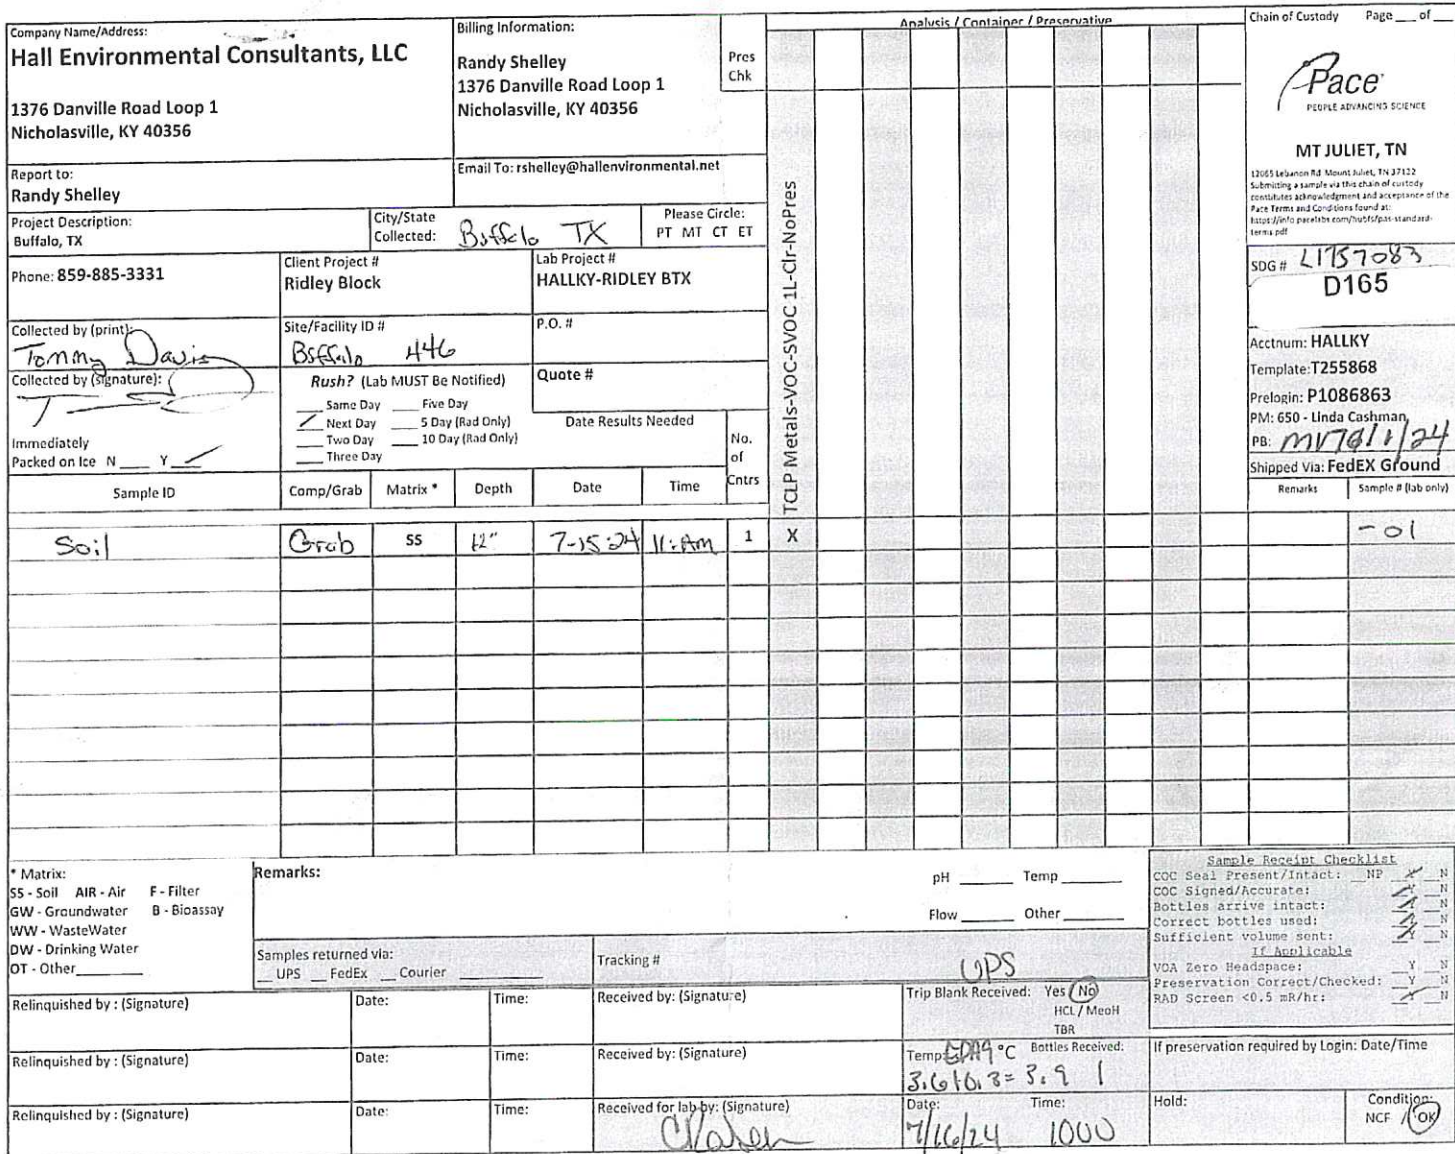 Company Name/Address:
Hall Environmental Consultants, LLC
1376 Danville Road Loop 1
Nicholasville, KY 40356
Billing Information:
Randy Shelley
1376 Danville Road Loop 1
Nicholasville, KY 40356
Pres
Chk
Analysis / Container / Preservative
Chain of Custody Page ___ of ___
Pace
PEOPLE ADVANCING SCIENCE
MT JULIET, TN
12065 Lebanon Rd Mount Juliet, TN 37122
Submitting a sample via this chain of custody
constitutes acknowledgment and acceptance of the
Pace Terms and Conditions found at:
https://info.pacelabs.com/hubfs/pas-standard-
terms.pdf
Report to:
Randy Shelley
Email To: rshelley@hallenvironmental.net
Project Description:
Buffalo, TX
City/State
Collected: Buffalo TX
Please Circle:
PT MT CT ET
Phone: 859-885-3331
Client Project #
Ridley Block
Lab Project #
HALLKY-RIDLEY BTX
TCLP Metals-VOC-SVOC 1L-Clr-NoPres
SDG # L1757083
D165
Collected by (print):
Tommy Davis
Site/Facility ID #
Buffalo 446
P.O. #
Acctnum: HALLKY
Template: T255868
Prelogin: P1086863
PM: 650 - Linda Cashman
PB:
Shipped Via: FedEX Ground
Collected by (signature):
Rush? (Lab MUST Be Notified)
___ Same Day ___ Five Day
___ Next Day ___ 5 Day (Rad Only)
___ Two Day ___ 10 Day (Rad Only)
___ Three Day
Quote #
Date Results Needed
Immediately
Packed on Ice N ___ Y ___
No.
of
Cntrs
Sample ID Comp/Grab Matrix * Depth Date Time
Remarks Sample # (lab only)
Soil Grab SS 12" 7-15-24 11:AM 1 X -01
* Matrix:
SS - Soil AIR - Air F - Filter
GW - Groundwater B - Bioassay
WW - WasteWater
DW - Drinking Water
OT - Other
Remarks:
pH ___ Temp ___
Flow ___ Other ___
Samples returned via:
__ UPS __ FedEx __ Courier
Tracking #
UPS
Sample Receipt Checklist
COC Seal Present/Intact: __NP __Y __N
COC Signed/Accurate: __Y __N
Bottles arrive intact: __Y __N
Correct bottles used: __Y __N
Sufficient volume sent: __Y __N
If Applicable
VOA Zero Headspace: __Y __N
Preservation Correct/Checked: __Y __N
RAD Screen <0.5 mR/hr: __Y __N
Relinquished by : (Signature) Date: Time: Received by: (Signature)
Trip Blank Received: Yes / No
HCL / MeoH
TBR
Relinquished by : (Signature) Date: Time: Received by: (Signature)
Temp: °C Bottles Received:
3.6+0.3=3.9 1
If preservation required by Login: Date/Time
Relinquished by : (Signature) Date: Time: Received for lab by: (Signature)
Date: Time:
7/16/24 1000
Hold:
Condition:
NCF / OK